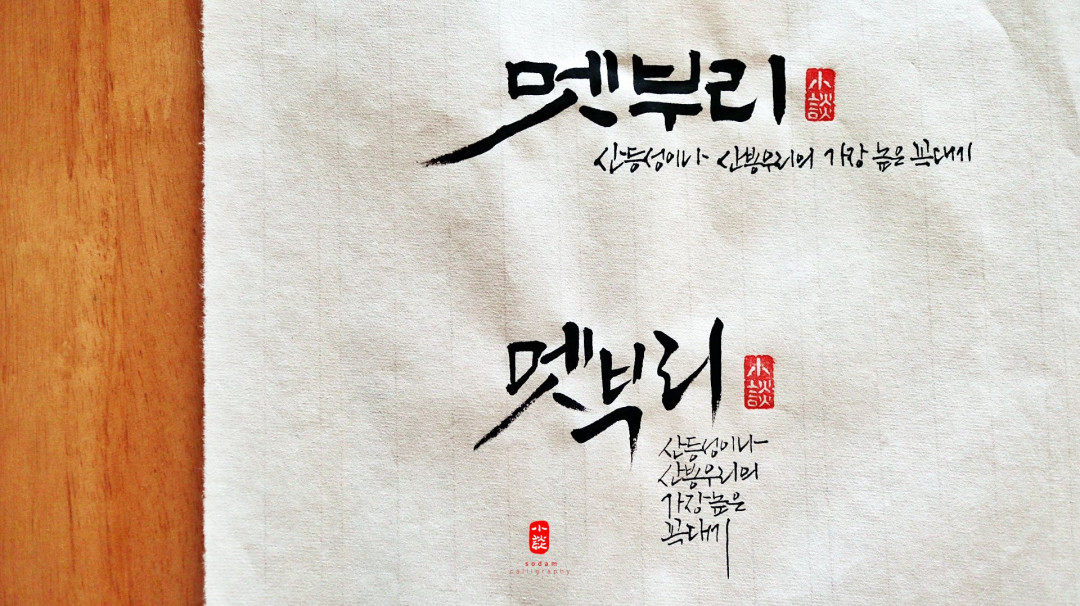 멧부리
小談
산등성이나 산봉우리의 가장 높은 꼭대기
멧부리
小談
산등성이나
산봉우리의
가장 높은
꼭대기
小談
sodam
calligraphy